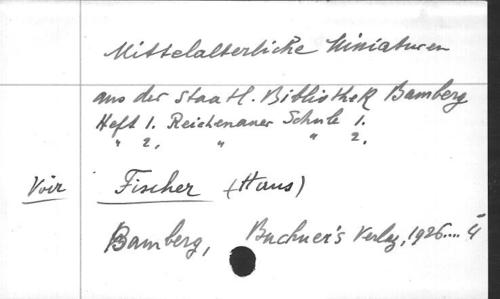 Mittelalterliche Miniaturen
aus der Staatl. Bibliothek Bamberg
Heft 1. Reichenauer Schule 1.
" 2, " " 2,
Voir Fischer (Hans)
Bamberg, Buchner's Verlag, 1926....